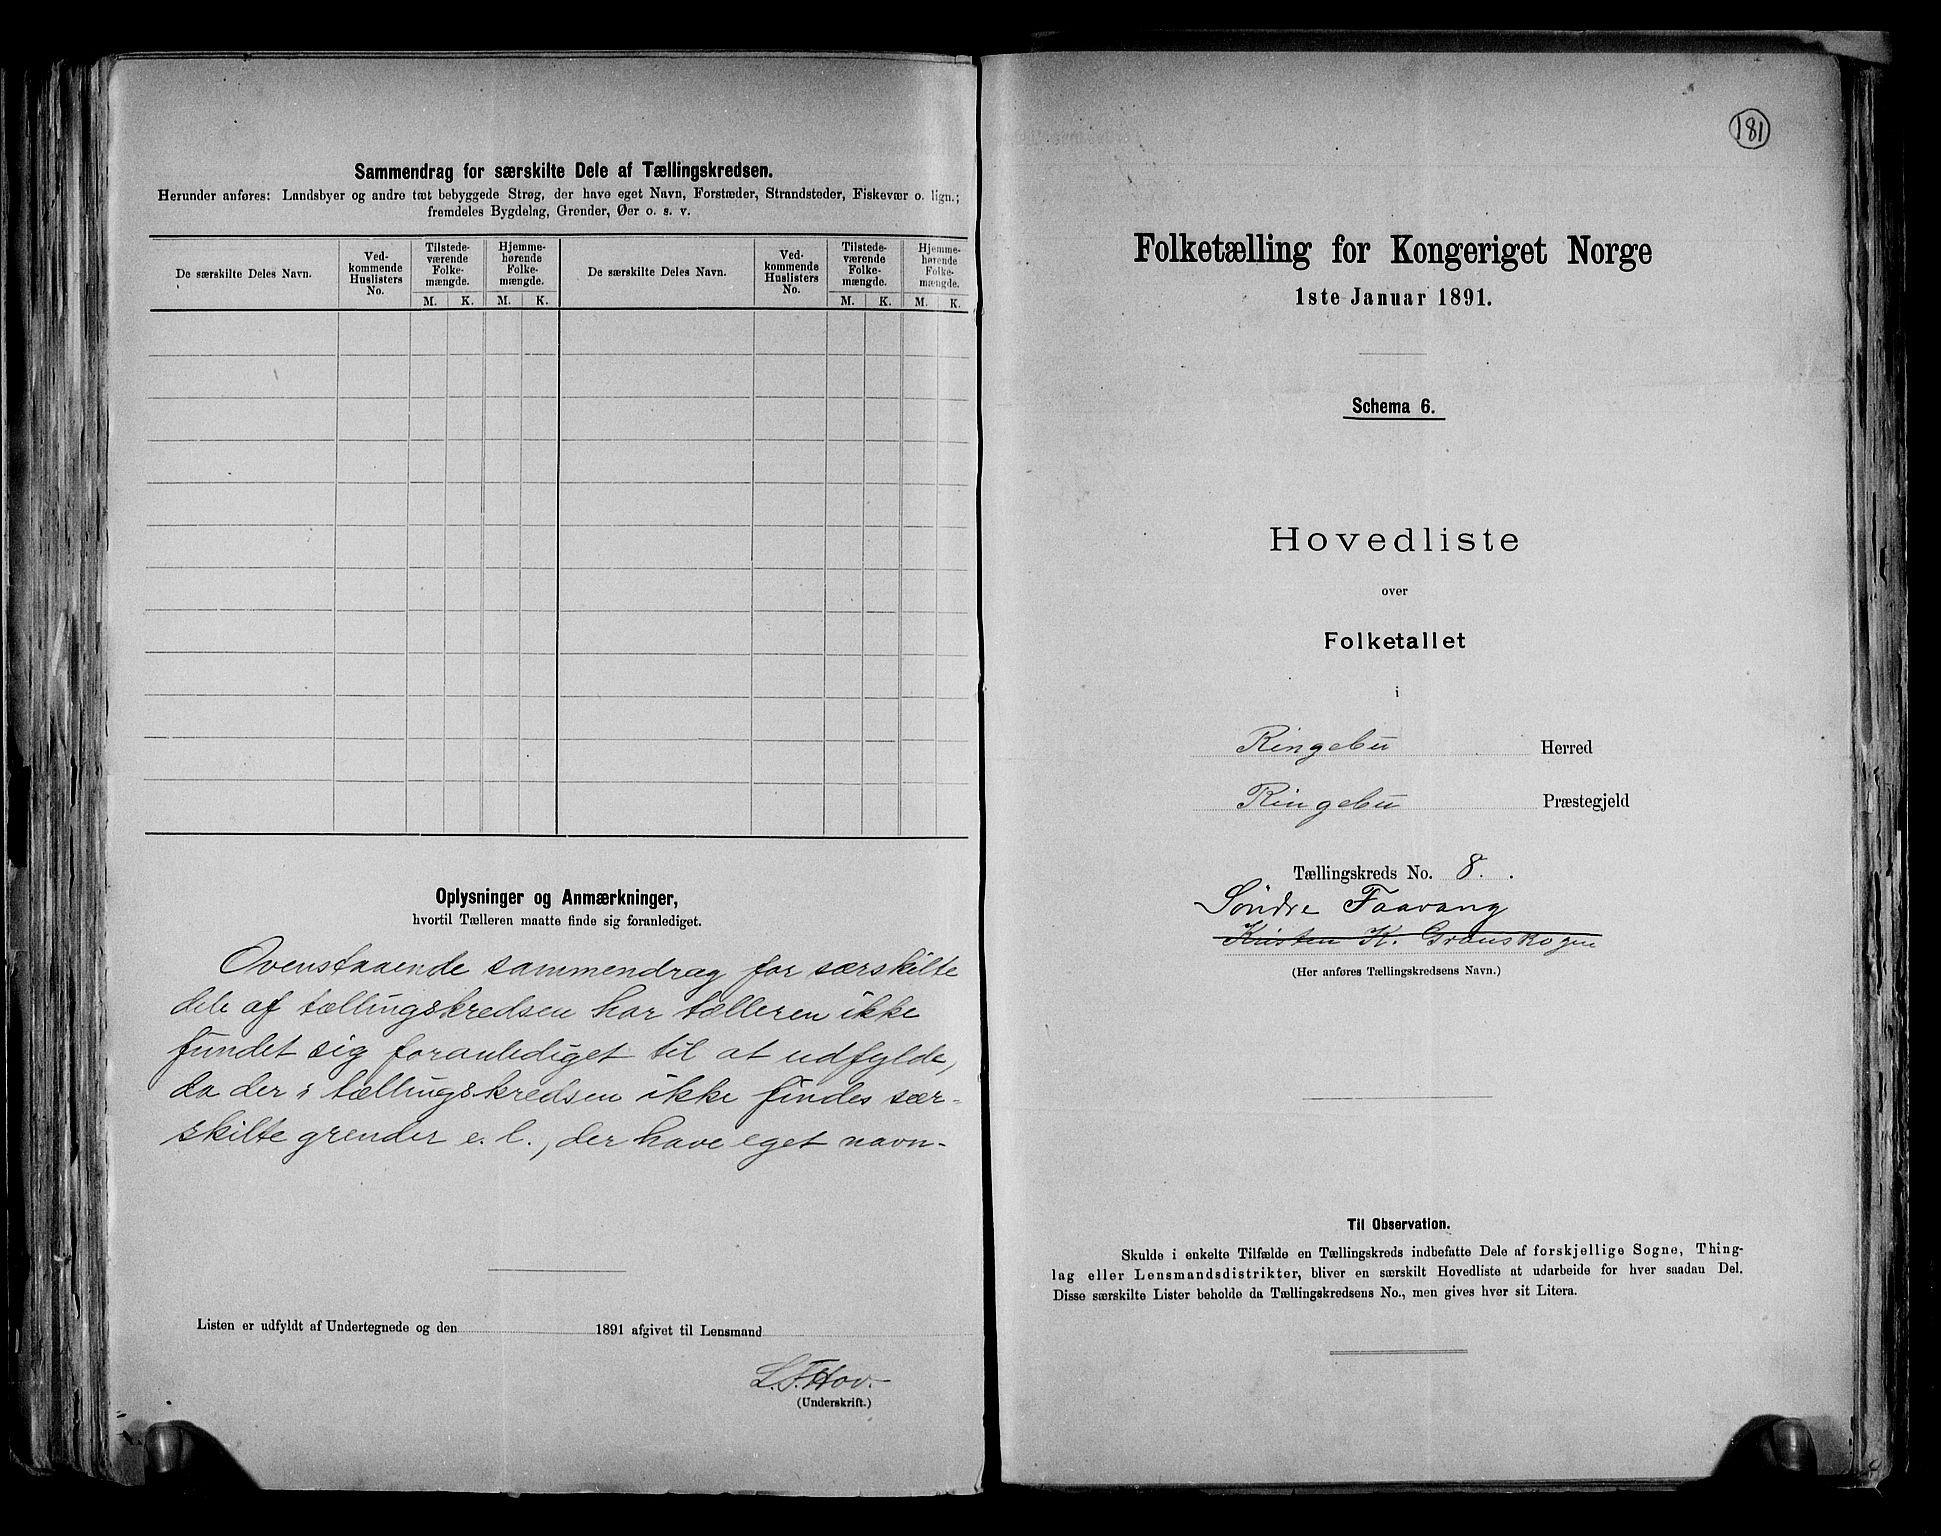 Sammendrag for særskilte Dele af Tællingskredsen.
Herunder anføres: Landsbyer og andre tæt bebyggede Strøg, der have eget Navn, Forstæder, Strandsteder, Fiskevær o. lign.;
fremdeles Bygdelag, Grender, Øer o. s. v.
De særskilte Deles Navn.
Ved-
kommende
Huslisters
No.
Tilstede-
værende
Folke-
mængde.
M. K.
Hjemme-
hørende
Folke-
mængde.
M. K.
De særskilte Deles Navn.
Ved-
kommende
Huslisters
No.
Tilstede-
værende
Folke-
mængde.
M. K.
Hjemme-
hørende
Folke-
mængde.
M. K.
Oplysninger og Anmærkninger,
hvortil Tælleren maatte finde sig foranlediget.
Ovenstaaende sammendrag for særskilte
dele af tællingskredsen har tælleren ikke
fundet sig foranlediget til at udfylde,
da der i tællingskredsen ikke findes sær-
skilte grender e. l., der have eget navn.
Listen er udfyldt af Undertegnede og den 1891 afgivet til Lensmand
L. F. Hov.
(Underskrift.)
181
Folketælling for Kongeriget Norge
1ste Januar 1891.
Schema 6.
Hovedliste
over
Folketallet
i
Ringebu Herred
Ringebu Præstegjeld
Tællingskreds No. 8.
Søndre Faavang
K. Granskogen
(Her anføres Tællingskredsens Navn.)
Til Observation.
Skulde i enkelte Tilfælde en Tællingskreds indbefatte Dele af forskjellige Sogne, Thing-
lag eller Lensmandsdistrikter, bliver en særskilt Hovedliste at udarbeide for hver saadan Del.
Disse særskilte Lister beholde da Tællingskredsens No., men gives hver sit Litera.